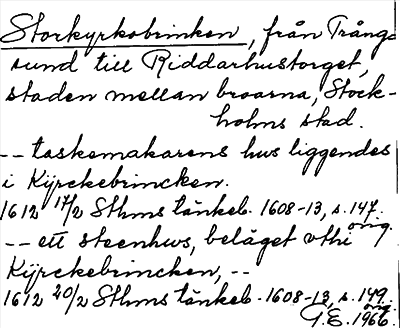 Storkyrkobrinken, från Trång-
sund till Riddarhustorget,
staden mellan broarna, Stock-
holms stad.
-- taskemakarens hus liggendes
i Kÿrckebrincken.
1612 17/2 Sthms tänkeb. 1608-13, s. 147.
orig.
-- ett steenhws, beläget vthi
Kÿrckebrincken, --
1612 20/2 Sthms tänkeb. 1608-13, s. 149.
orig.
G.E. 1966.